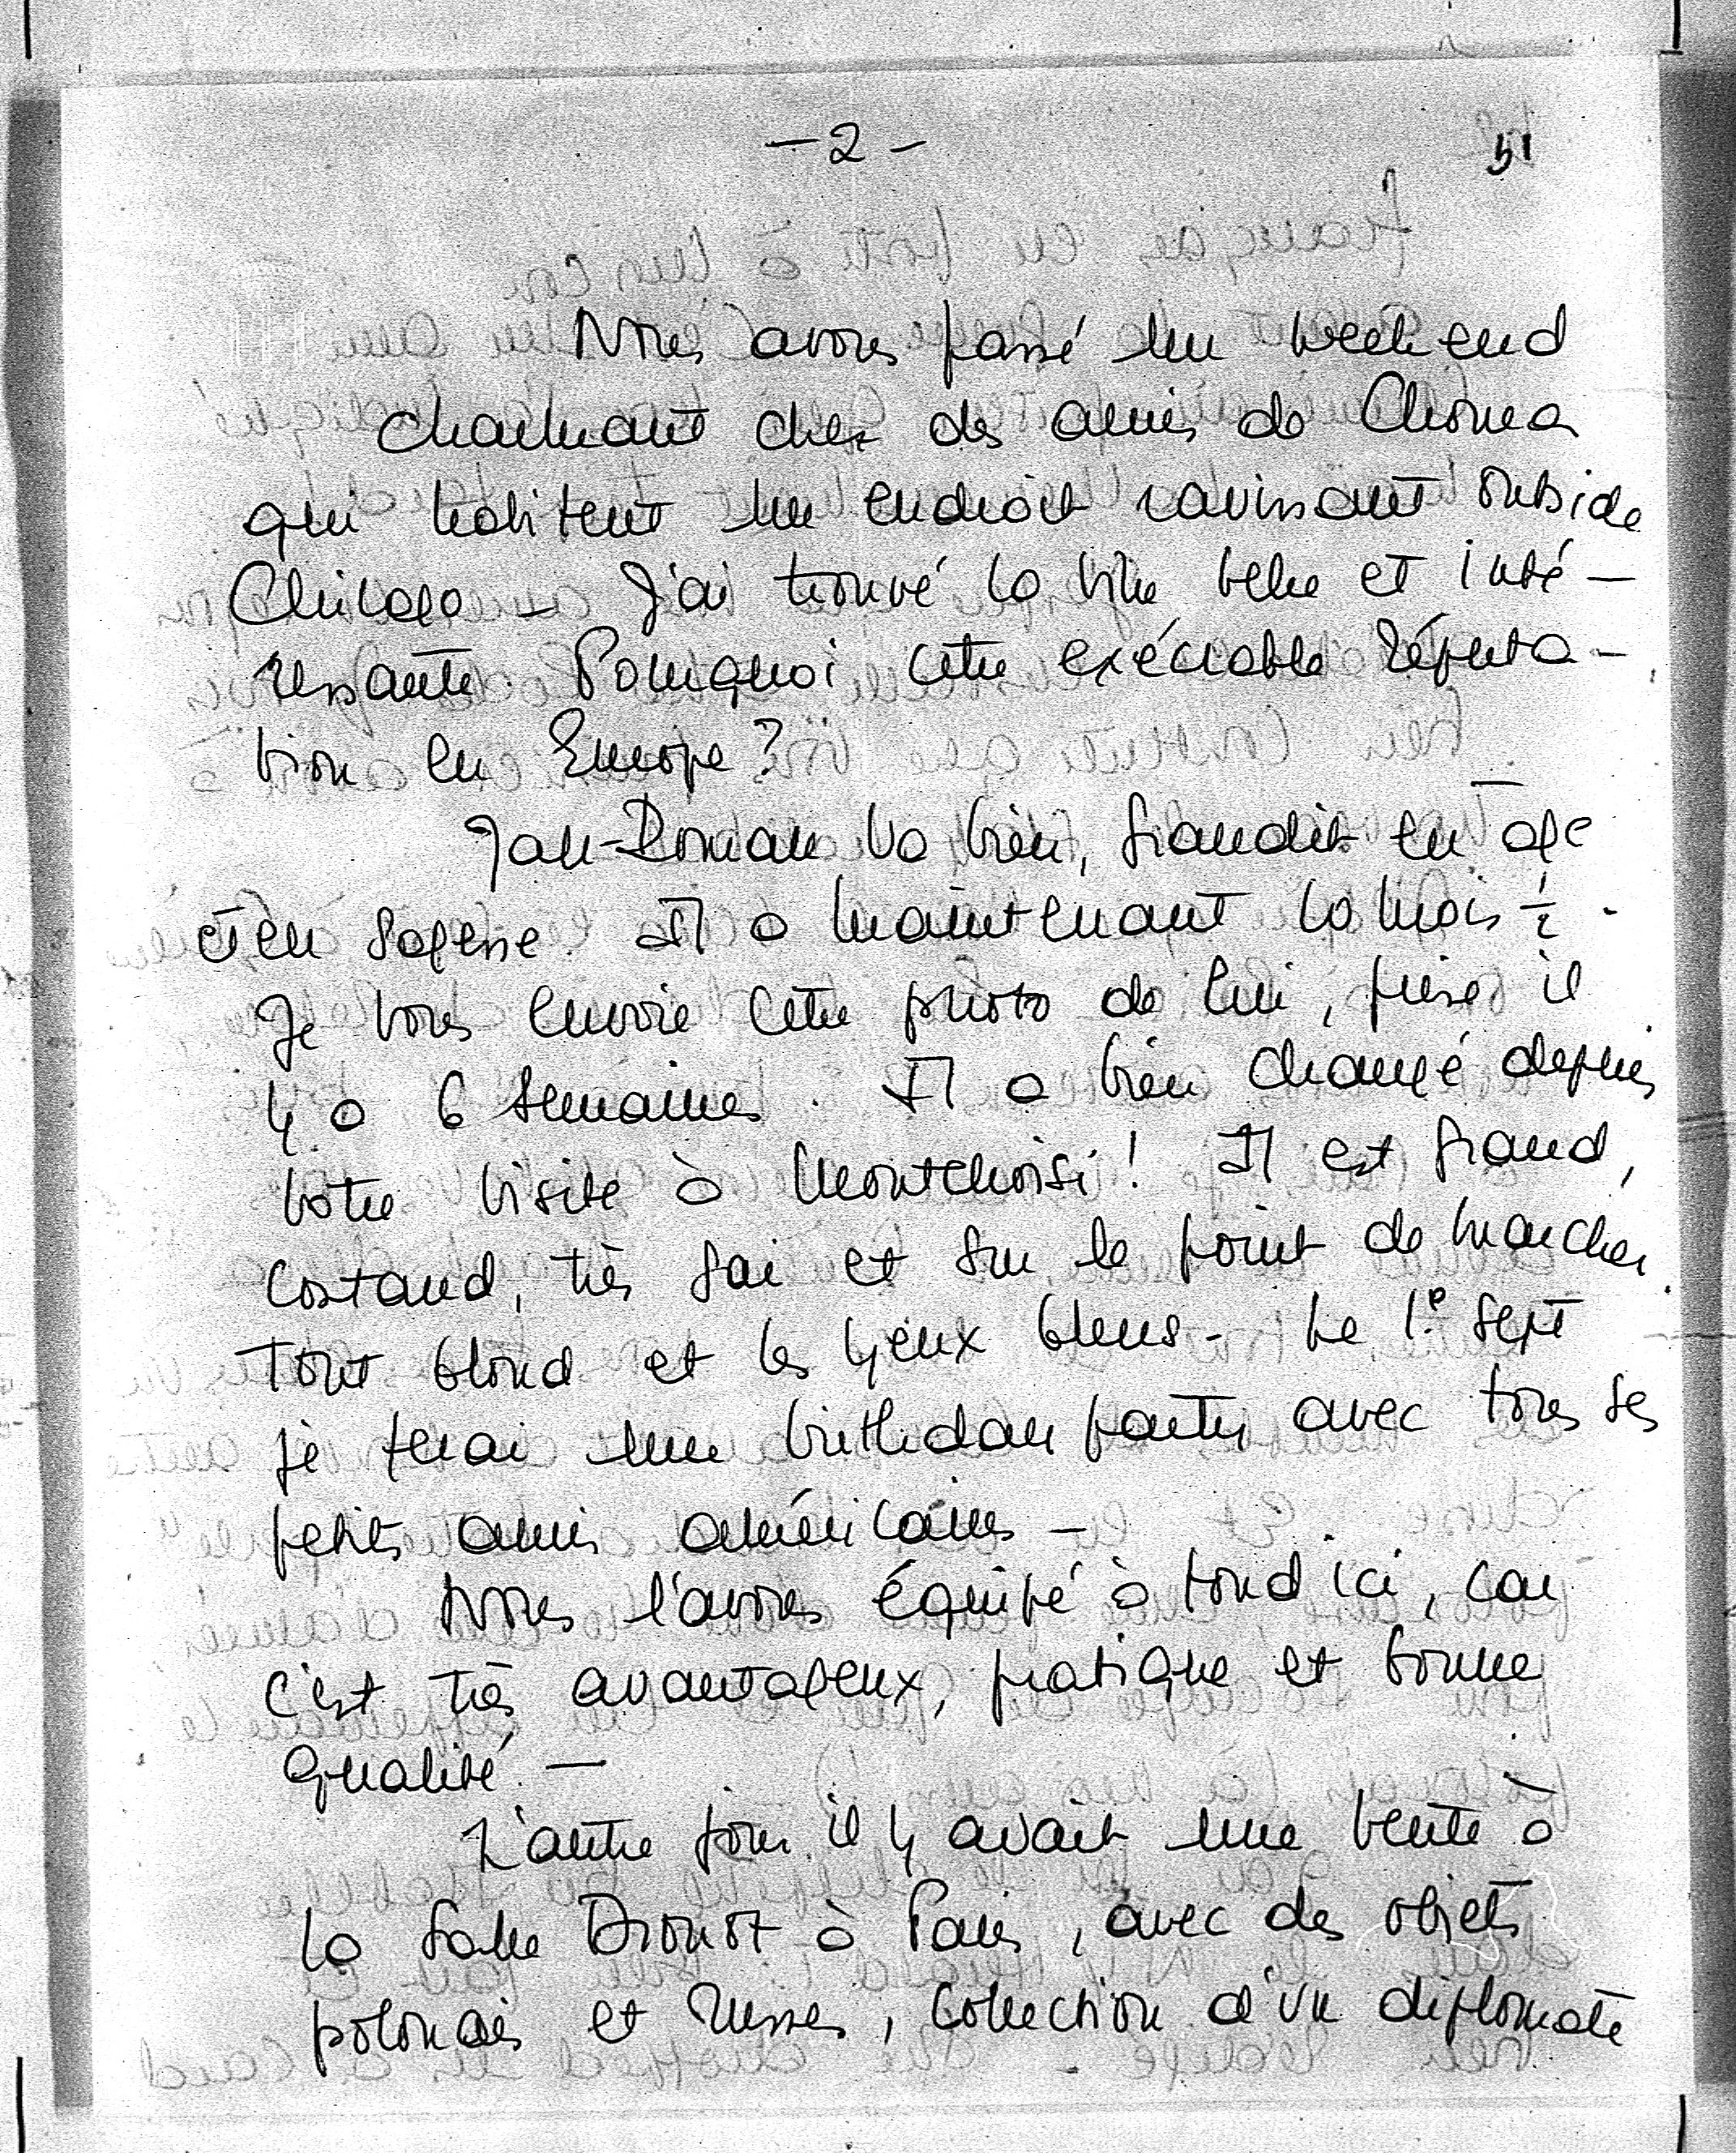 — 2 —
51
Nous avons passé un weekend
charmant chez des amis de
qui habitent un endroit ravissant outside
Chicago — J'ai trouvé la ville belle et inté-
ressante. Pourquoi cette exécrable réputa-
tion en Europe?
Jan-Roman va bien, grandit en âge
et en sagesse. Il a maintenant 10 mois ½.
Je vous envoie cette photo de lui, prise il
y a 6 semaines. Il a bien changé depuis
votre visite à Montchoisi! Il est grand,
costaud, très gai et sur le point de marcher.
Tout blond et les yeux bleus — Le 1e Sept
je ferai une birthday party avec tous ses
petits amis américains —
Nous l'avons équipé à fond ici, car
c'est très avantageux, pratique et bonne
qualité. —
L'autre jour il y avait une vente à
la Salle Drouot à Paris, avec des objets
polonais et russes, collection d'un diplomate